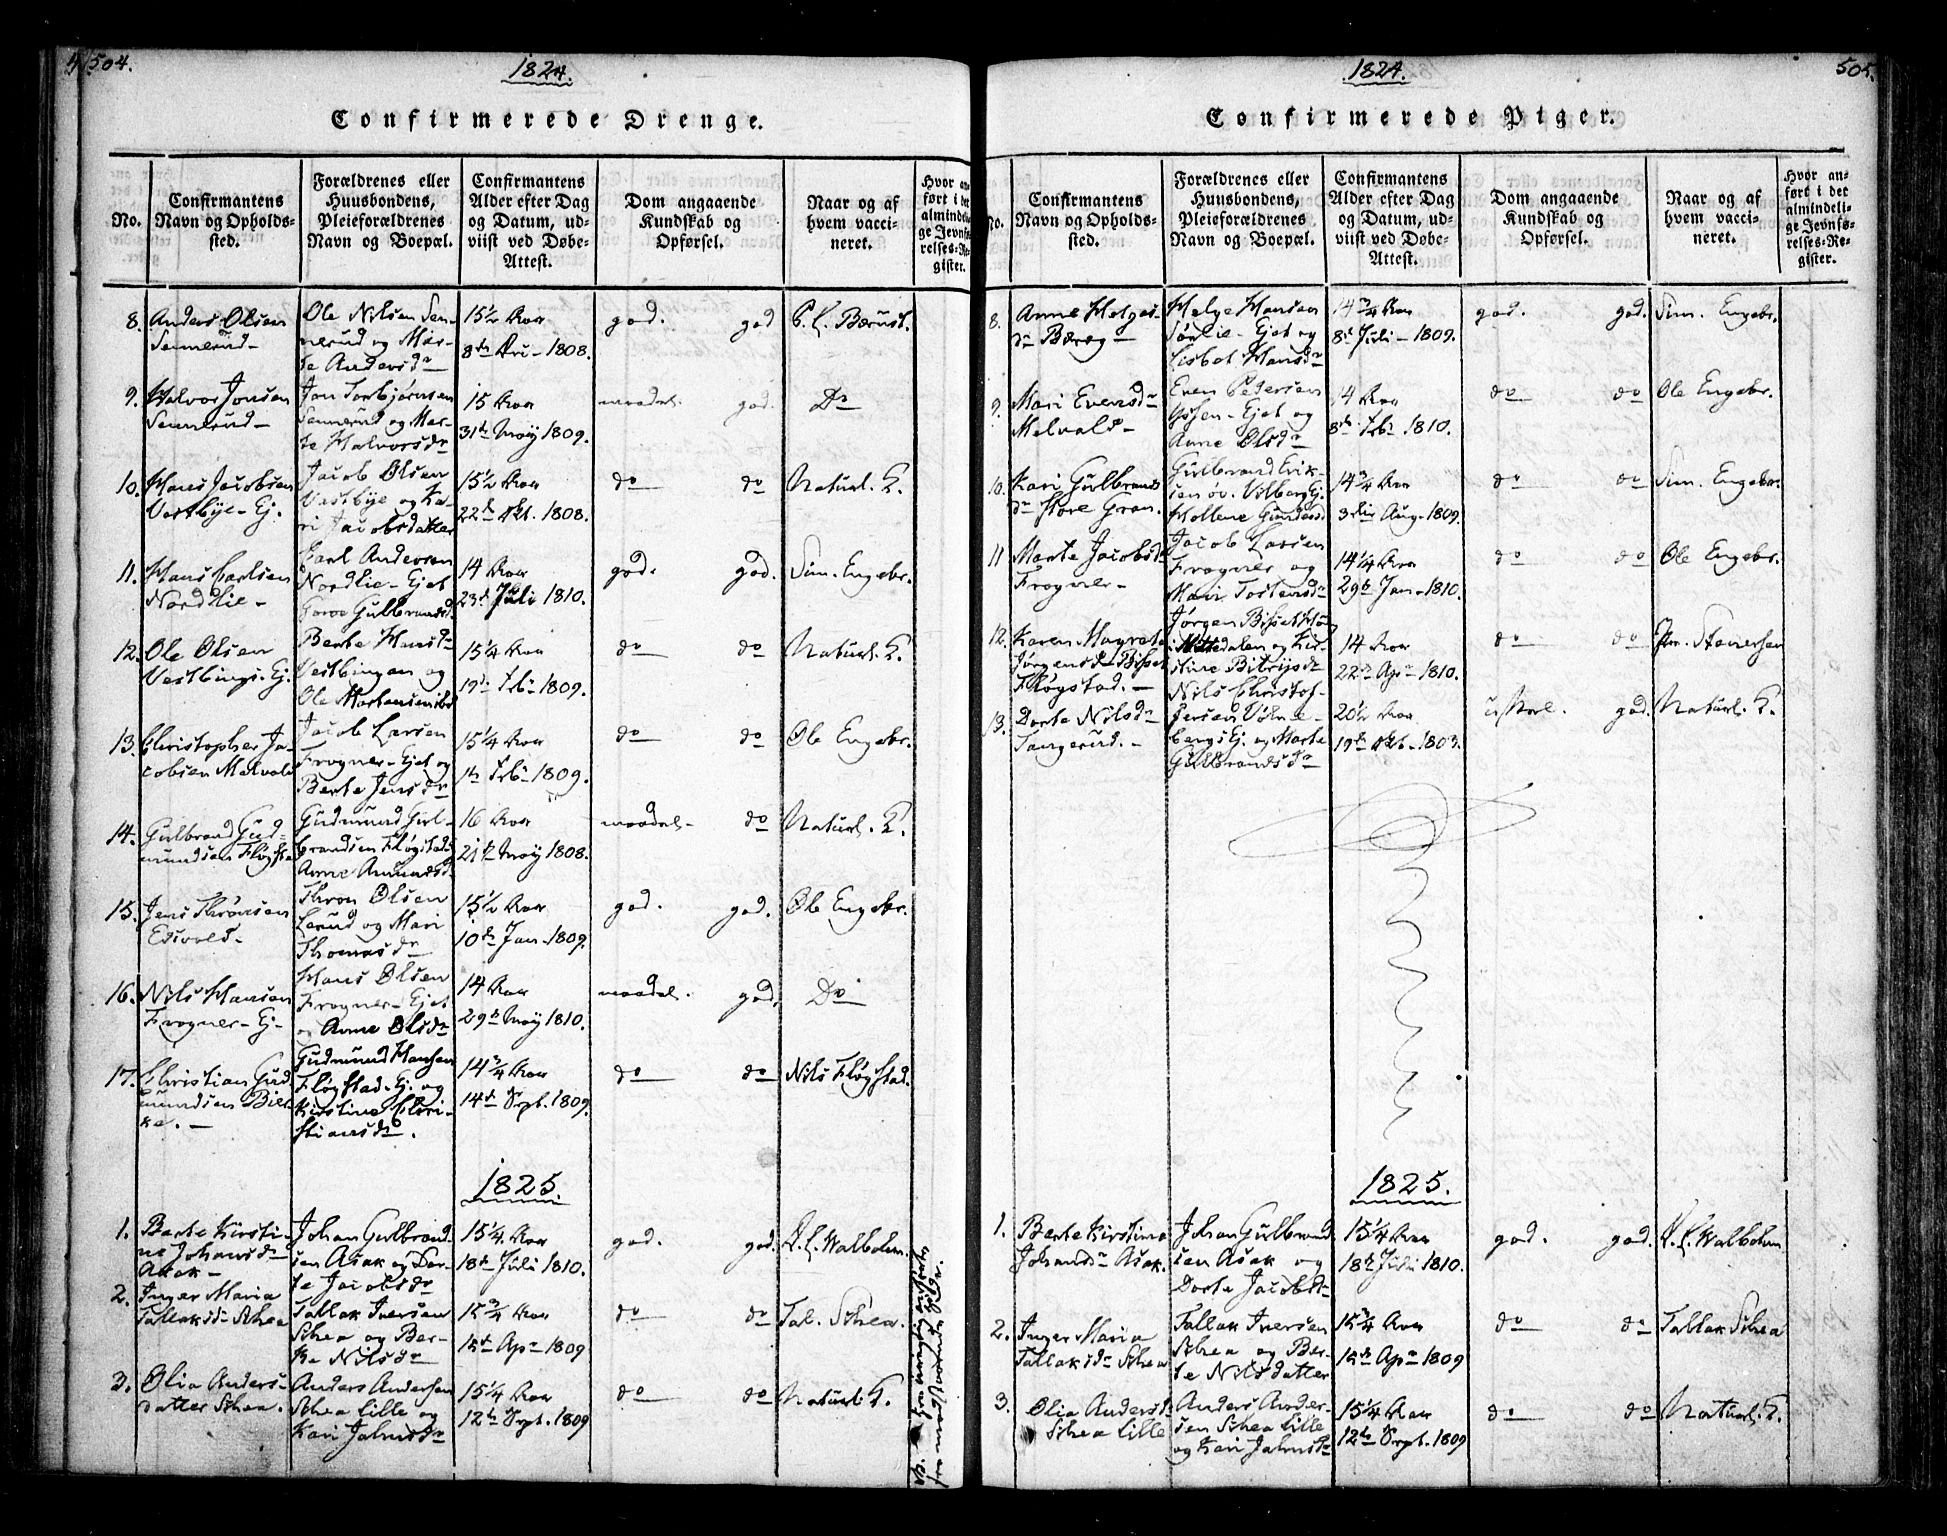 504.
1824.
Confirmerede Drenge.
No.
Confirmantens
Navn og Opholds-
sted.
Forældrenes eller
Huusbondens,
Pleieforældrenes
Navn og Boepæl.
Confirmantens
Alder efter Dag
og Datum, ud-
viist ved Døbe-
Attest.
Dom angaaende
Kundskab og
Opførsel.
Naar og af
hvem vacci-
neret.
Hvor an-
ført i det
almindeli-
ge Jevnfø-
relses-Re-
gister.
8.
Anders Olsen
Sennerud
Ole Nilsen Sen-
nerud og Mar-
te Andersdr
15 1/2 Aar
1808.
god. god
Bærust.
9.
Halvor Jonsen
Sennerud
Jon Torbjørnsen
Sennerud og Mar-
te Halvorsdr
15 Aar
31te May 1809.
maadel. god.
Do
10.
Hans Jacobsen
Vestbye-Ej.
Jacob Olsen
Vestbye og Ka-
ri Jacobsdatter
15 1/2 Aar
22de Okt. 1808.
do do
Naturl. K.
11.
Hans Carlsen
Nordlie
Carl Andersen
Nordlie-Ejet
Gulbrandsd.
14 Aar
23de Juli 1810.
god. god.
Sim. Engebr.
12.
Ole Olsen
Vestbyngs-Ej.
Berte Hansdr
Vestbyngen og
Ole Mortensen
15 1/4 Aar
19de Feb. 1809.
do do
Naturl. K.
13.
Christopher Ja-
cobsen Melvold
Jacob Larsen
Frogner-Ejet og
Berte Jensdr
15 1/4 Aar
1te Feb. 1809.
do do
Ole Engebr.
14.
Gulbrand Gud-
mundsen Fløgsta
Gudmund Gul-
brandsen Fløgstad
Anne Amundsd.
16 Aar
21de May 1808.
maadel- do
Naturl. K.
15.
Jens Thronsen
Eisvold
Thron Olsen
Lerud og Mari
Thomasdr
15 1/2 Aar
10de Jan. 1809.
god. god.
Ole Engebr.
16.
Nils Hansen
Frogner-Ej-
Hans Olsen
Frogner-Ejet
og Anne Olsdr
14 Aar
29de May 1810.
maadel. god.
Do
17.
Christian Gud
mundsen Bier-
ke.
Gudmund Hansen
Fløgstad-Ej. og
Kirstine Chri-
stiansdr.
14 3/4 Aar
14de Sept. 1809.
do do
Nils Fløgstad.
1825.
1.
Berte Kirsti-
ne Johansdr
Asak-
Johan Gulbrand-
sen Asak og Dor-
te Jacobsdr
15 1/4 Aar
18de Juli 1810.
god. god.
Walbohm.
2.
Inger Maria
Tallaksdr Schea
Tallak Iversen
Schea og Ber-
the Nilsdr
15 3/4 Aar
15de Apr 1809
do do
Tal. Schea.
3.
Olia Anders-
datter Schea.
Anders Andersen
Schea Lille og
Kari Jahnsdr
15 1/4 Aar
12te Sept. 1809
do do
Naturl. K.
505.
1824.
Confirmerede Piger.
No.
Confirmantens
Navn og Opholds-
sted.
Forældrenes eller
Huusbondens,
Pleieforældrenes
Navn og Boepæl.
Confirmantens
Alder efter Dag
og Datum, ud-
viist ved Døbe-
Attest.
Dom angaaende
Kundskab og
Opførsel.
Naar og af
hvem vacci-
neret.
Hvor an-
ført i det
almindeli-
ge Jevnfø-
relses-Re-
gister.
8.
Anne Helges-
dr Bæreg
Helge Hansen
Sørlie-Ejet og
Lisbet Hansdr
14 3/4 Aar
8de Juli 1809.
god. god.
Sim. Engebr.
9.
Mari Evensdr
Melvold
Even Pedersen
Ejet og
Anne Olsdr
14 Aar
8de Feb. 1810.
do do
Ole Engebr.
10.
Kari Gulbrands
dr Store Gran.
Gulbrand Erik-
sen øv. Vilberg Ej.
Gundersd.
14 3/4 Aar
3die Aug. 1809.
do do
Sim. Engebr.
11
Marte Jacobsdr
Frogner-
Jacob Larsen
Frogner og
Mari Tostensdr
14 1/4 Aar
29de Jan. 1810.
do do
Ole Engebr.
12.
Karen Magrete
Jørgensdr Bisset
Fløgstad.
Jørgen Bisset
dalen og Kir-
stine
14 Aar
22de Apr 1810.
do do
Stenersen
13.
Dorte Nilsdr
Tangerud.
Nils Christof-
fersen
bergs Ej. og Marte
Gulbrandsdr
20 1/2 Aar
19de Okt. 1803.
god.
Naturl. K.
1825.
1.
Berte Kirstine
Johansdr Asak.
Johan Gulbrand
sen Asak og
Dorte Jacobsdr
15 1/4 Aar
18de Juli 1810.
god. god.
Walbohm
2.
Inger Maria
Tallaksdr Schea
Tallak Iversen
Schea og Ber-
te Nilsdatter
15 3/4 Aar
15de Apr 1809
do do
Tallak Schea
3.
Olia Andersdr
Schea Lille
Anders Ander-
sen Schea Lille
og Kari Jahnsdr
15 1/4 Aar
12te Sept. 1809
do do
Naturl. K.